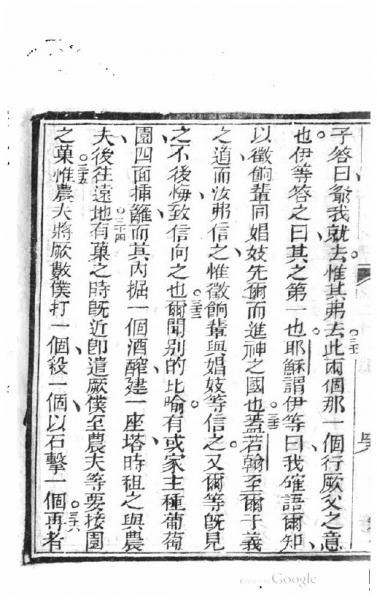 子答曰爺我就去惟其弗去三十一此兩個那一個行厥父之意
也伊等答之曰其之第一也耶穌謂伊等曰我確語爾知
以徵餉輩同娼妓先爾而進神之國也三十二蓋若翰至爾于義
之道而汝弗信之惟徵餉輩與娼妓等信之又爾等旣見
之不後悔致信向之也三十三爾聞別的比喻有或家主種葡萄
園四面插籬而其內掘一個酒醡建一座塔時租之與農
夫後往遠地三十四有菓之時旣近卽遣厥僕至農夫等要接園
之菓三十五惟農夫將厥數僕打一個殺一個以石擊一個三十六再者
Google